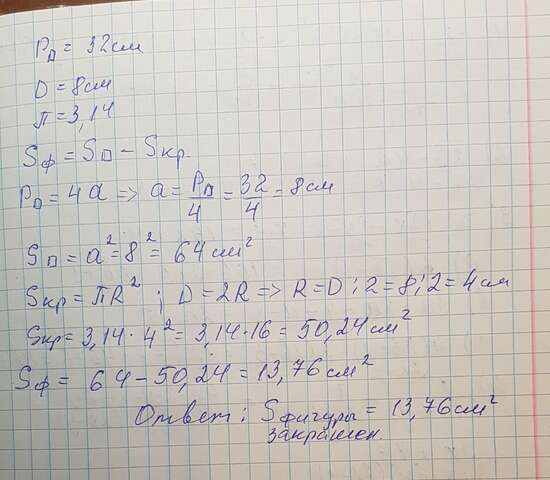 P□ = 32см
D = 8см
π = 3,14
Sф = S□ - Sкр.
P□ = 4a => a = P□/4 = 32/4 = 8см
S□ = a² = 8² = 64 см²
Sкр = πR² ; D = 2R => R = D : 2 = 8 : 2 = 4 см
Sкр = 3,14 · 4² = 3,14 · 16 = 50,24 см²
Sф = 64 - 50,24 = 13,76 см²
Ответ : Sфигуры = 13,76 см²
закрашен.